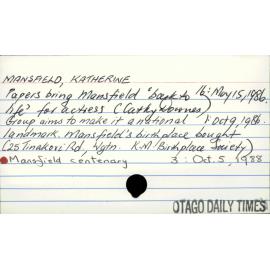 MANSFIELD, KATHERINE
Papers bring Mansfield "back to 16: May 15, 1986.
life" for actress (Cathy Downes)
Group aims to make it a national 1: Oct 9, 1986.
landmark. Mansfield's birthplace bought
(25 Tinakori Rd, Wgtn. K.M. Birthplace Society)
Mansfield centenary 3: Oct. 5, 1988
OTAGO DAILY TIMES